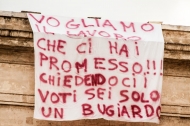 VOGLIAMO
IL LAVORO
CHE CI HAI
PROMESSO!!!
CHIEDENDOCI I
VOTI SEI SOLO
UN BUGIARDO